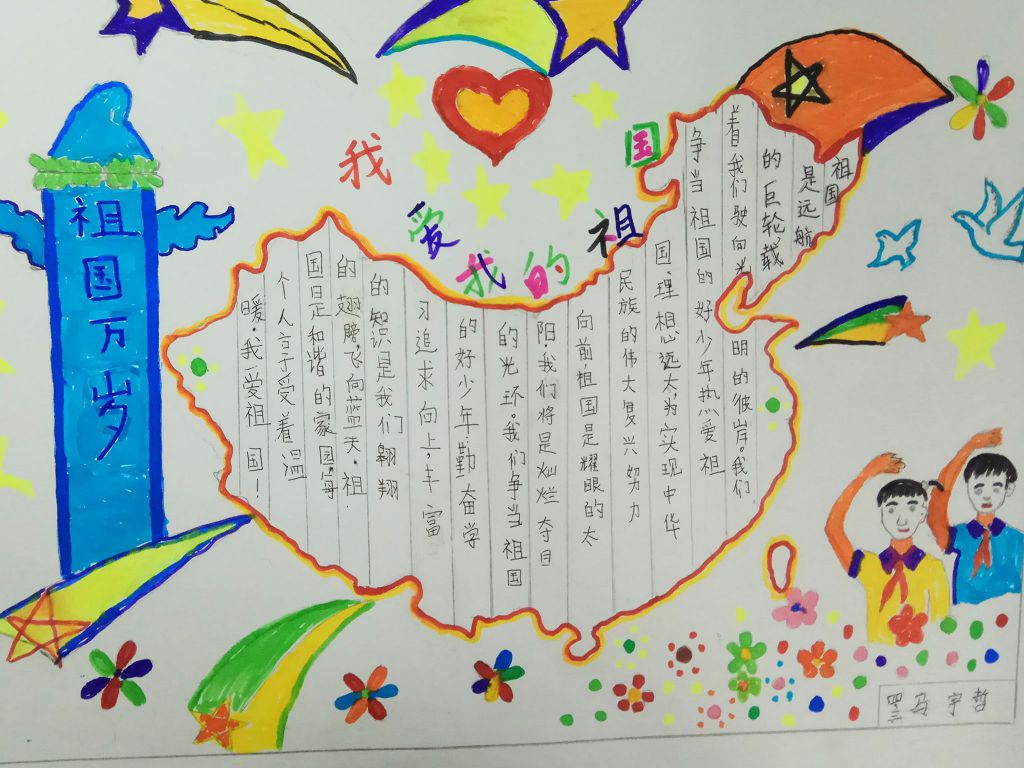 我爱我的祖国
祖国万岁
祖国
是远航
的巨轮载
着我们驶向光明的彼岸。我们
争当祖国的好少年热爱祖
国,理想远大,为实现中华
民族的伟大复兴努力
向前,祖国是耀眼的太
阳,我们将是灿烂夺目
的光环。我们争当祖国
的好少年,勤奋学
习追求向上,丰富
的知识是我们翱翔
的翅膀,飞向蓝天。祖
国是和谐的家园,每
个人享受着温
暖。我爱祖国!
四三 马宇哲